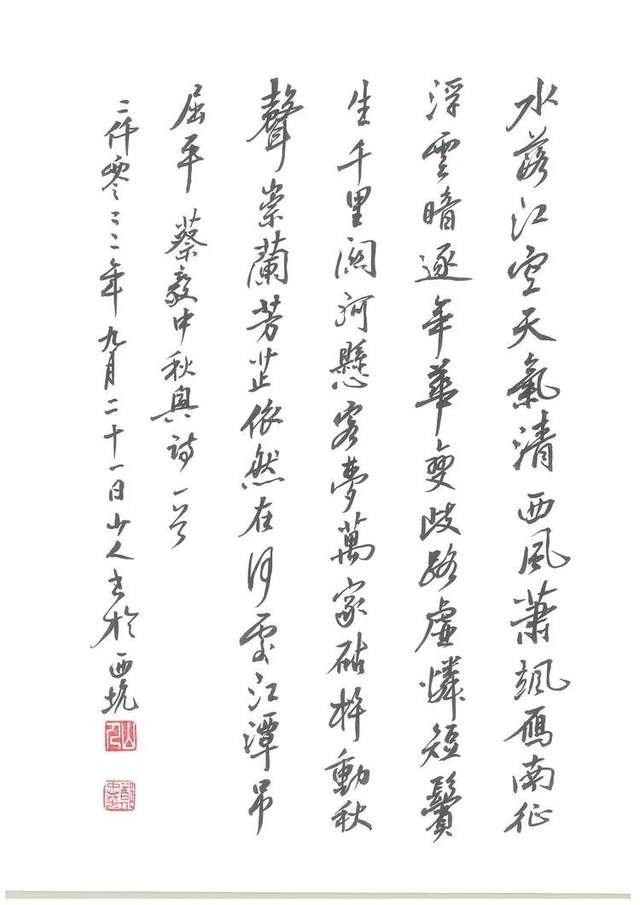 水落江空天氣清西風蕭颯雁南征
浮雲暗逐年華變歧路虛憐短鬢
生千里關河懸客夢萬家砧杵動秋
聲崇蘭芳芷依然在何處江潭吊
屈平 蔡毅中秋興詩一首
二仟零二二年九月二十一日山人書於西坑